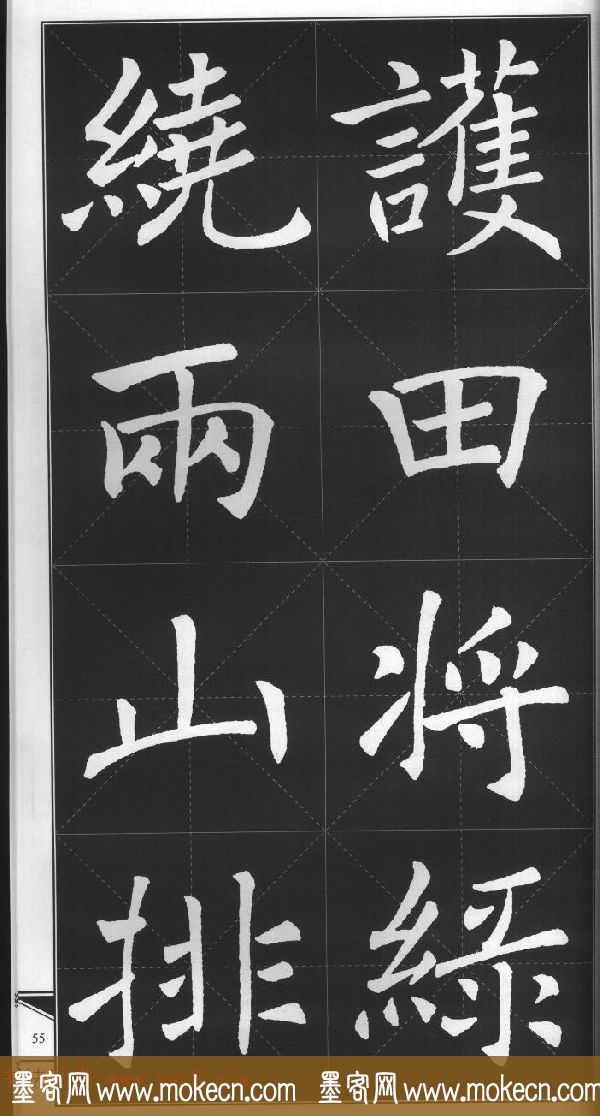 護田将緑
繞兩山排
55
墨客网 www.mokecn.com 墨客网 www.mokecn.com